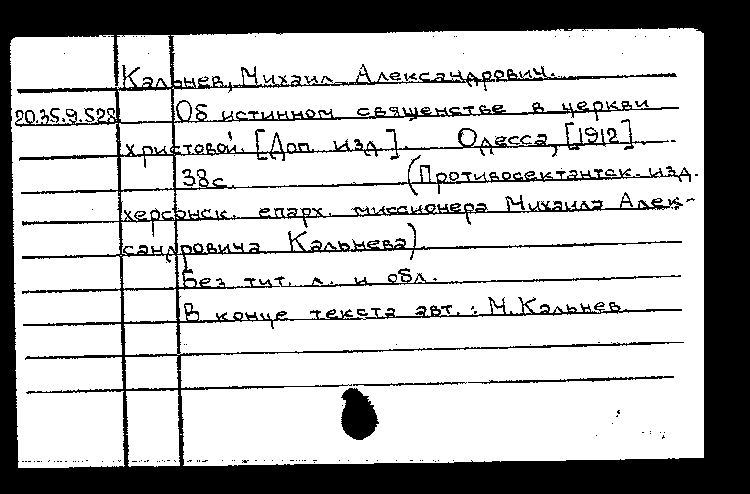 Кальнев, Михаил Александрович.
20.35.9.528 Об истинном священстве в церкви
христовой. [Доп. изд.]. Одесса, [1912].
38с. (Противосектантск. изд.
херсонск. епарх. миссионера Михаила Алек-
сандровича Кальнева).
Без тит. л. и обл.
В конце текста авт.: М. Кальнев.